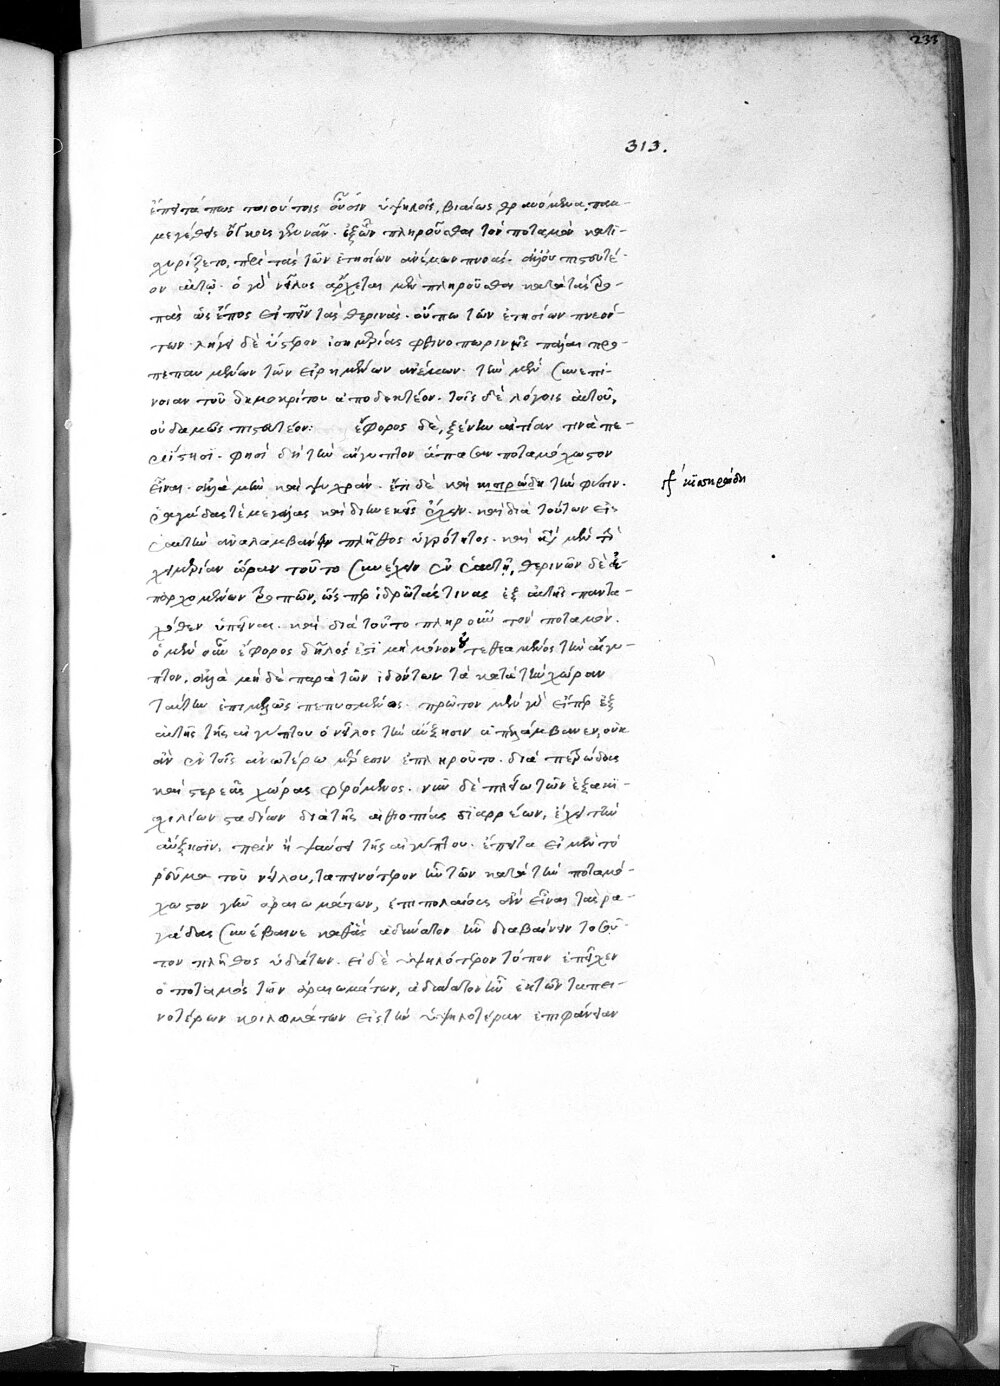 233
313.
ἔπειτά πως τοιούτοις οὖσιν ὑψηλοῖς, βιαίως θραυόμενα, παμ-
μεγέθεις ὄμβρους γεννᾶν. ἐξ ὧν πληροῦσθαι τὸν ποταμὸν κατι-
χυρίζετο, περὶ τὰς τῶν ἐτησίων ἀνέμων πνοάς. ἀλλ' οὐ πιστευτέ-
ον αὐτῷ. ὁ γὰρ νεῖλος ἄρχεται μὲν πληροῦσθαι κατὰ τὰς τρο-
πὰς ὡς ἔπος εἰπεῖν τὰς θερινάς. οὔπω τῶν ἐτησίων πνεόν-
των. λήγει δὲ ὕστερον ἰσημερίας φθινοπωρινῆς πάλαι προ-
πεπαυμένων τῶν εἰρημένων ἀνέμων. τὴν μὲν οὖν ἐπί-
νοιαν τοῦ δημοκρίτου ἀποδεκτέον. τοῖς δὲ λόγοις αὐτοῦ,
οὐδαμῶς πιστευτέον: ἔφορος δὲ, ξένην αἰτίαν τινὰ πε-
ρίσησι. φησὶ δὴ τὴν αἴγυπτον ἅπασαν ποταμόχωστον
εἶναι. ἀλλὰ μὴν καὶ ψυχράν. ἔτι δὲ καὶ κισιρώδη τὴν φύσιν.
ῥαγάδας τὲ μεγάλας καὶ διηνεκεῖς ἔχειν. καὶ διὰ τούτων εἰς
ἑαυτὴν ἀναλαμβάνειν πλῆθος ὑγρότητος. καὶ κατὰ μὲν τὴν
χειμερίαν ὥραν τοῦτο συνέχειν ἐν ἑαυτῇ, θερινῶν δὲ ἐ-
παρχομένων τροπῶν, ὥσπερ ἱδρῶτάς τινας ἐξ αὐτῆς παντα-
χόθεν ὑπεῖναι. καὶ διὰ τοῦτο πληροῦν τὸν ποταμόν.
ὁ μὲν οὖν ἔφορος δῆλός ἐστι μὴ μόνον οὐ τεθεαμένος τὴν αἴγυ-
πτον, ἀλλὰ μηδὲ παρὰ τῶν εἰδότων τὰ κατὰ τὴν χώραν
ταύτην ἐπιμελῶς πεπυσμένος. πρῶτον μὲν γὰρ εἴπερ ἐξ
αὐτῆς τῆς αἰγύπτου ὁ νεῖλος τὴν αὔξησιν ἀπελάμβανεν, οὐκ
ἂν ἐν τοῖς ἀνωτέρω μέρεσιν ἐπληροῦτο. διὰ πετρώδους
καὶ στερεᾶς χώρας φερόμενος. νῦν δὲ πλείω τῶν ἑξακις-
χιλίων σταδίων διὰ τῆς αἰθιοπίας διαρρέων, ἔχει τὴν
αὔξησιν, πρὶν ἢ ψαῦσαι τῆς αἰγύπτου. ἔπειτα εἰ μὲν τὸ
ῥεῦμα τοῦ νείλου, ταπεινότερον ἦν τῶν κατὰ τὴν ποταμό-
χωστον γῆν ἀραιωμάτων, ἐπιπολαίους ἂν εἶναι τὰς ῥα-
γάδας συνέβαινε καθ' ἃς ἀδύνατον ἦν διαβαίνειν τοσοῦ-
τον πλῆθος ὑδάτων. εἰ δὲ ὑψηλότερον τόπον ἐπεῖχεν
ὁ ποταμὸς τῶν ἀραιωμάτων, ἀδύνατον ἦν ἐκ τῶν ταπει-
νοτέρων κοιλωμάτων εἰς τὴν ὑψηλοτέραν ἐπιφάνειαν